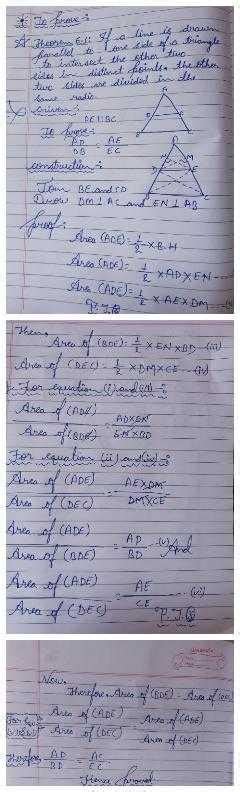 To prove :-
Theorem 6.1: If a line is drawn
parallel to one side of a triangle
to intersect the other two
sides in distinct points, the other
two sides are divided in the
same radio.
Given :-
DE||BC
To prove :-
AD/DB = AE/EC
construction :-
Join BE and CD
Draw DM⊥AC and EN⊥AB
proof :-
Area (ADE) = 1/2 × B.H
Area (ADE) = 1/2 × AD × EN
Area (ADE) = 1/2 × AE × DM
P.T.O
Then,
Area of (BDE) = 1/2 × EN × BD (iii)
Area of (DEC) = 1/2 × DM × CE (iv)
For equation (i) and (iii) :-
Area of (ADE) / Area of (BDE) = AD×EN / EN×BD
For equation (ii) and (iv) :-
Area of (ADE) / Area of (DEC) = AE×DM / DM×CE
Area of (ADE) / Area of (BDE) = AD/BD (v) And
Area of (ADE) / Area of (DEC) = AE/CE (vi)
P.T.O
Now,
Therefore, Area of (BDE) = Area of
Area of (ADE) / Area of (DEC) = Area of (ADE) / Area of (DEC)
Therefore AD/BD = AC/EC
Hence proved